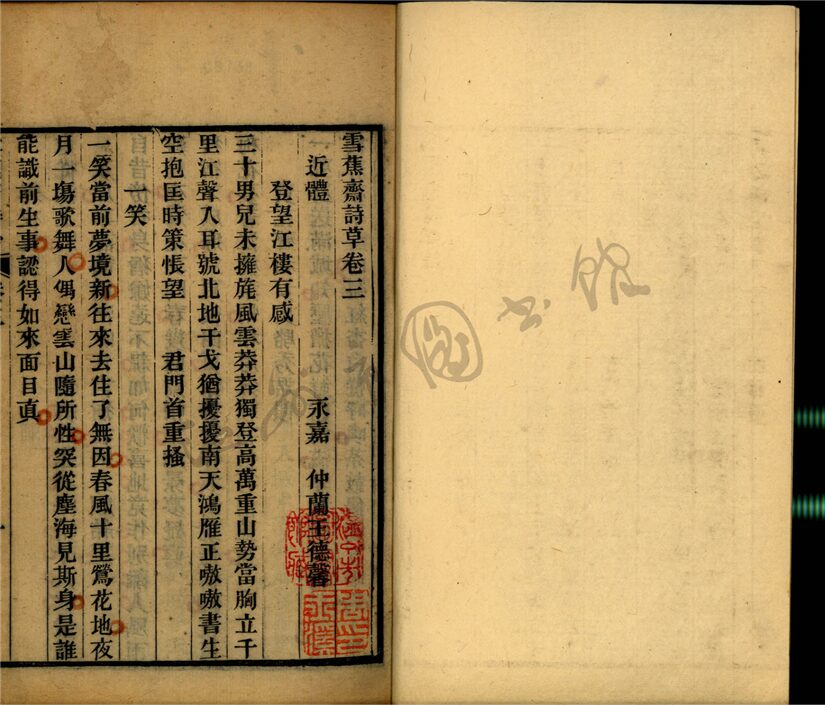 雪蕉齋詩草卷三
近體　永嘉　仲蘭王德馨
登望江樓有感
三十男兒未擁旄風雲莽莽獨登高萬重山勢當胸立千
里江聲入耳號北地干戈猶擾擾南天鴻雁正嗷嗷書生
空抱匡時策悵望　君門首重搔
一笑
一笑當前夢境新往來去住了無因春風十里鶯花地夜
月一場歌舞人偶戀雲山隨所性突從塵海見斯身是誰
能識前生事認得如來面目真